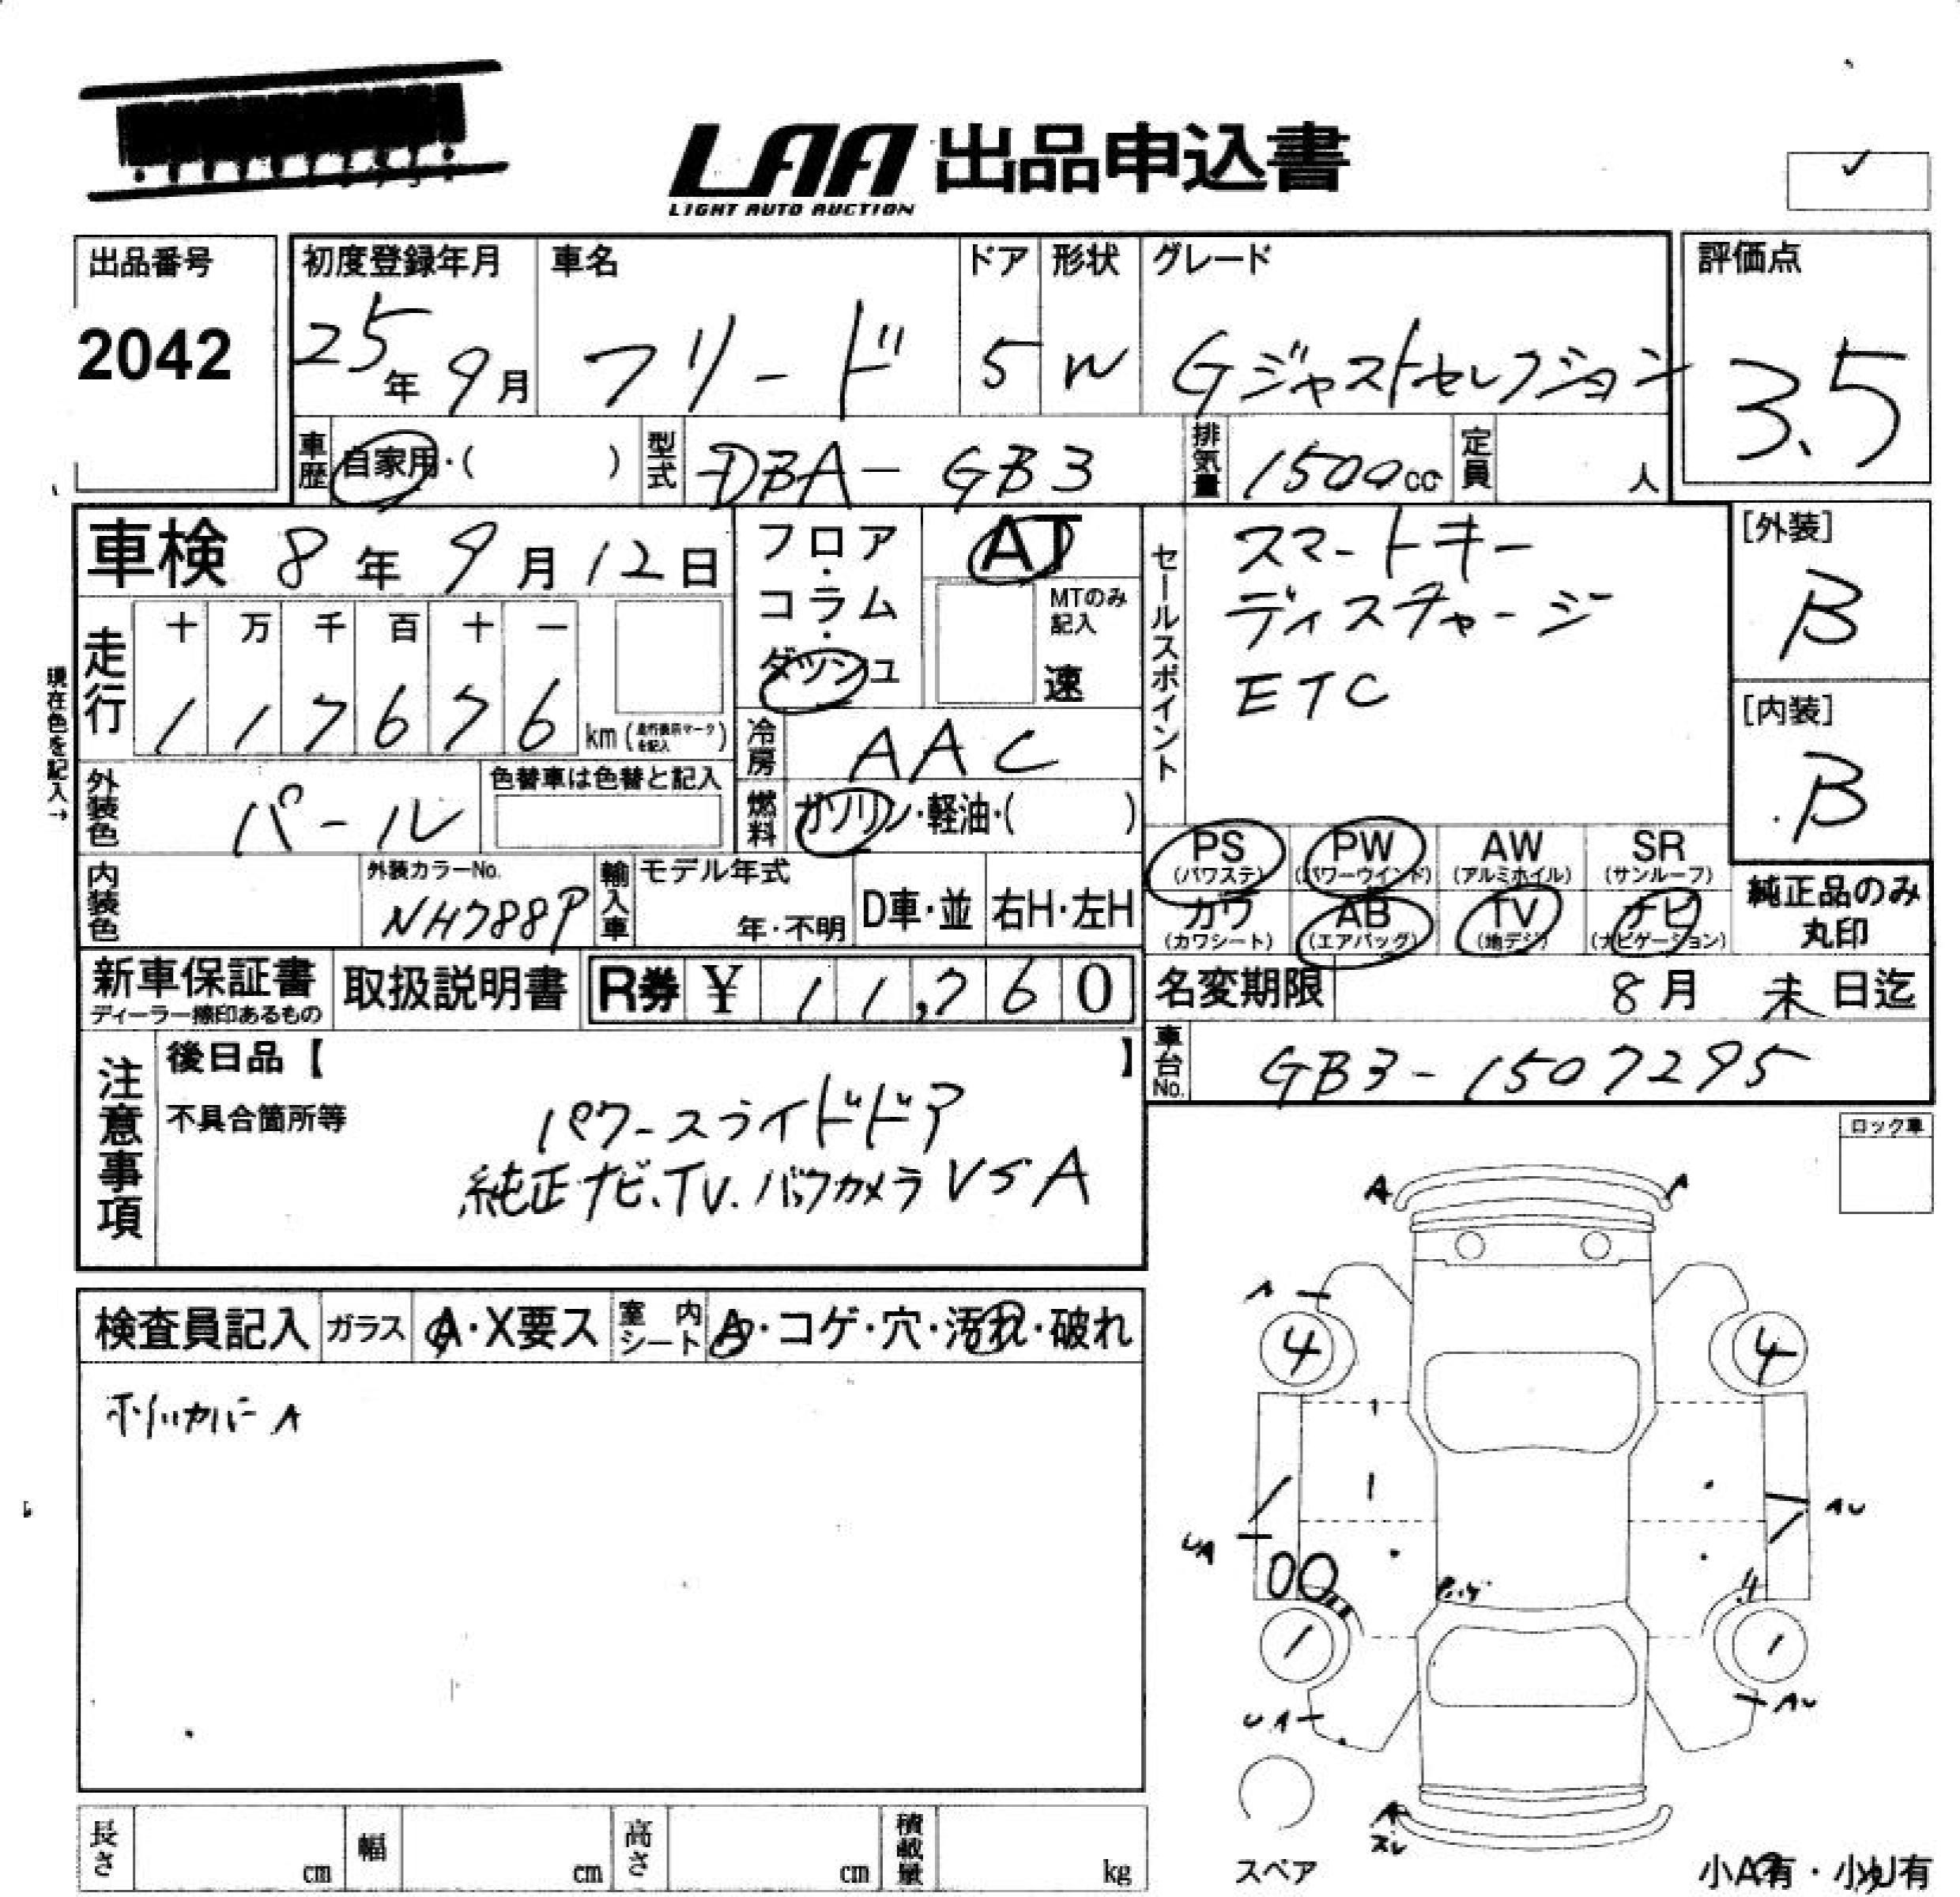 LAA 出品申込書
LIGHT AUTO AUCTION
✓
出品番号
2042
初度登録年月
25年9月
車名
フリード
ドア
5
形状
W
グレード
Gジャストセレクション
評価点
3.5
車歴 自家用・( )
型式 DBA-GB3
排気量 1500cc
定員 人
車検 8年9月12日
フロア・コラム・ダッシュ
AT
MTのみ記入
速
セールスポイント
スマートキー
ディスチャージ
ETC
[外装]
B
[内装]
B
現在色を記入→
走行
十 万 千 百 十 一
1 1 7 6 7 6 km
冷房 AAC
外装色 パール
色替車は色替と記入
燃料 ガソリン・軽油・( )
PS (パワステ)
PW (パワーウインド)
AW (アルミホイル)
SR (サンルーフ)
カワ (カワシート)
AB (エアバッグ)
TV (地デジ)
ナビ (ナビゲーション)
純正品のみ丸印
内装色
外装カラーNo.
NH788P
輸入車
モデル年式
年・不明
D車・並
右H・左H
新車保証書
ディーラー捺印あるもの
取扱説明書
R券 ¥ 11,760
名変期限 8月 末 日迄
車台No. GB3-1507295
注意事項
後日品【 】
不具合箇所等
パワースライドドア
純正ナビ、TV. バックカメラ VSA
ロック車
検査員記入
ガラス A・X要ス
室内シート A・コゲ・穴・汚れ・破れ
A
A
A
4
4
AU
UA
1
1
UA
AU
A
スペア
長さ cm
幅 cm
高さ cm
積載量 kg
小A有・小U有